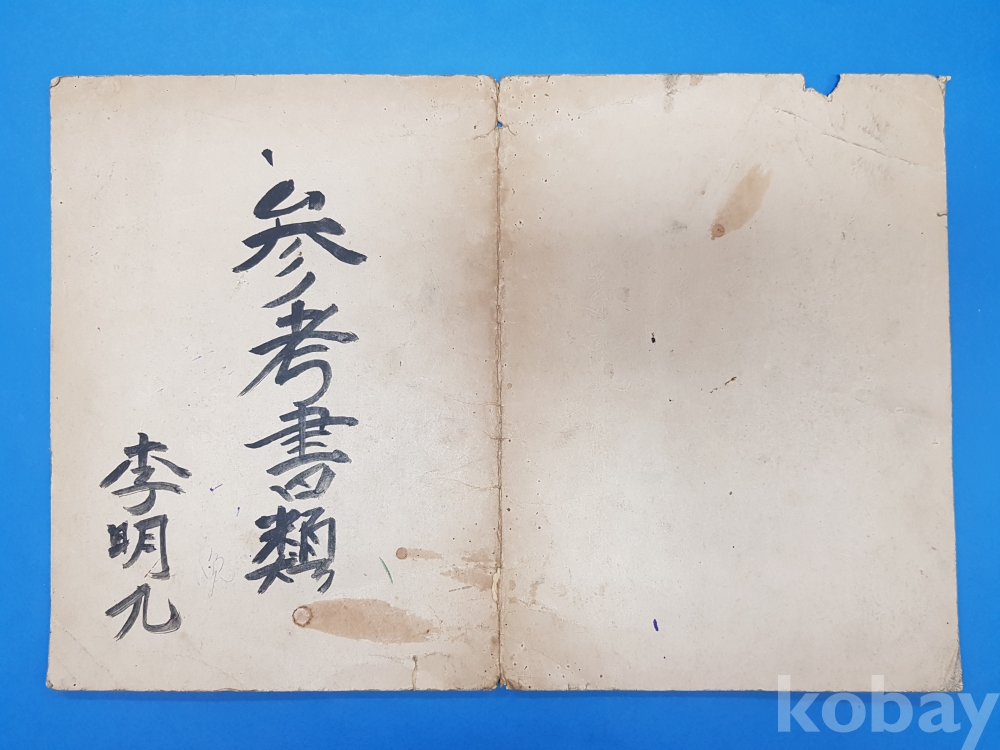 參考書類
李明九
kobay